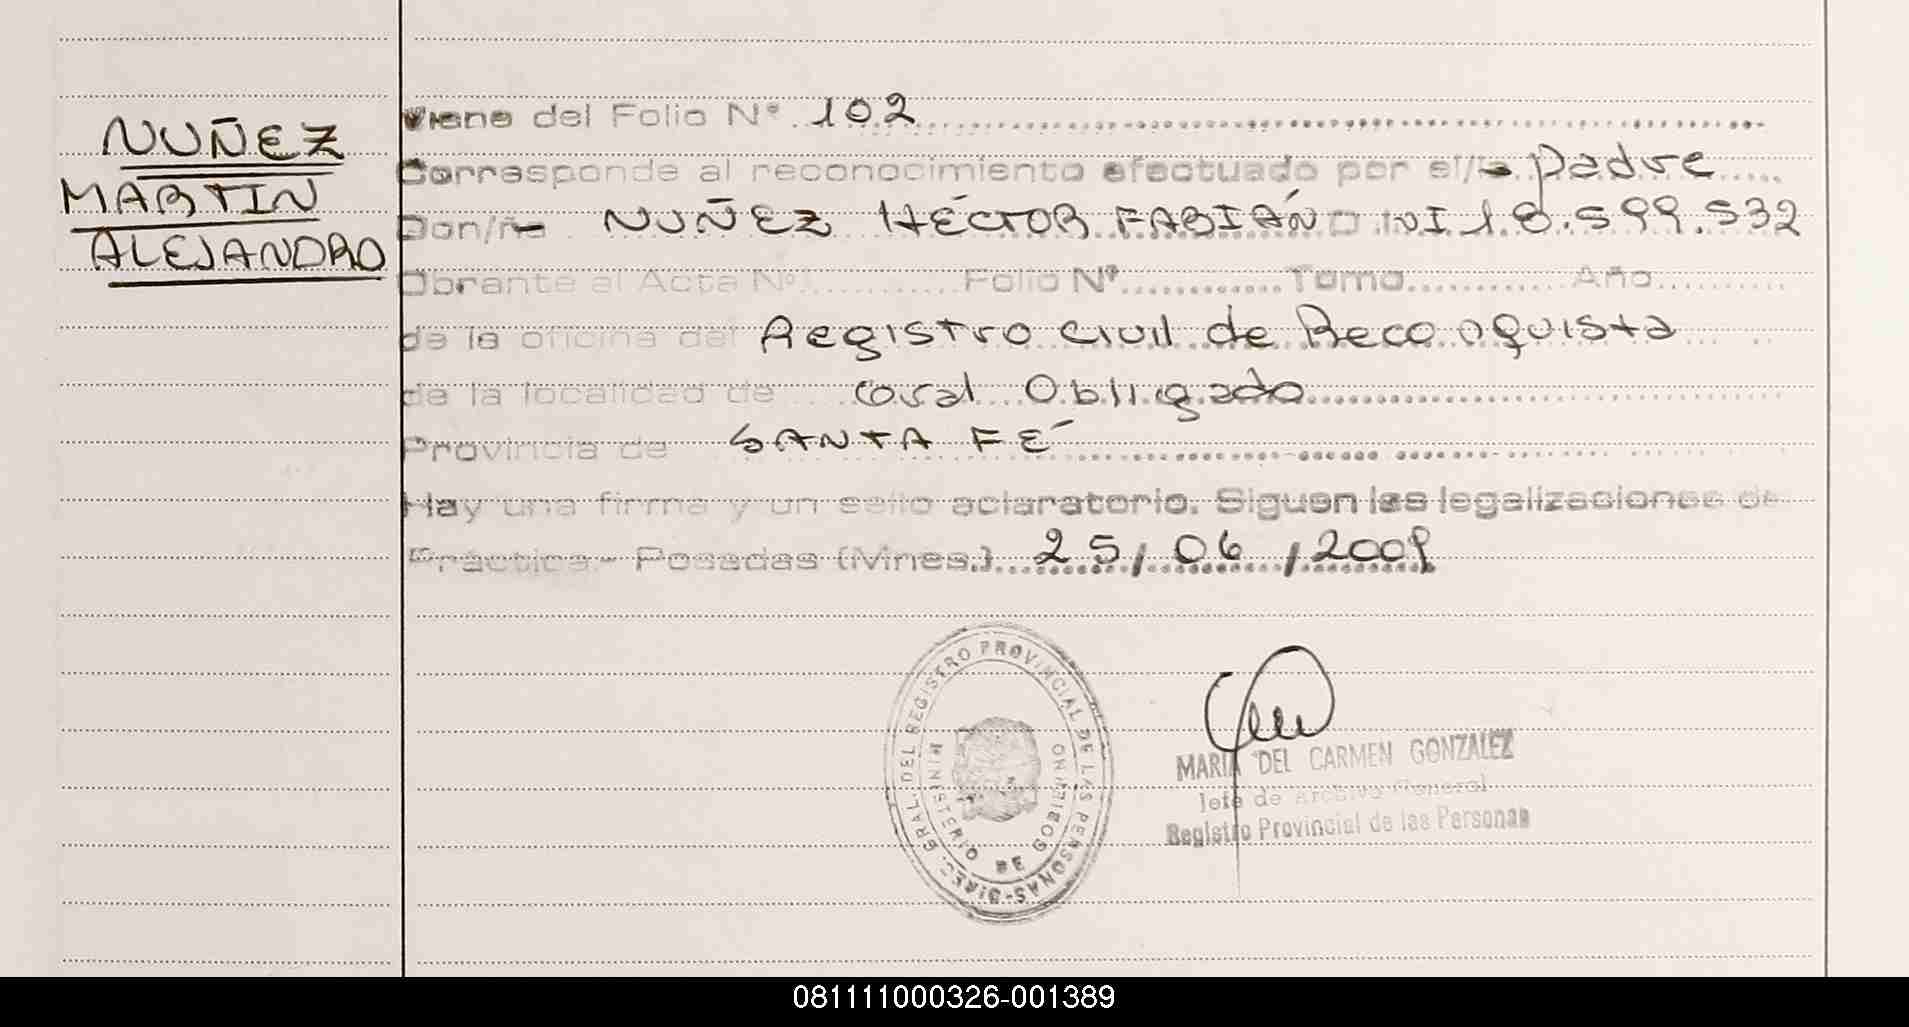 NUÑEZ
MARTIN
ALEJANDRO
Viene del Folio Nº 102
Corresponde al reconocimiento efectuado por el/la padre
Don/ña NUÑEZ HÉCTOR FABIÁN DNI 18.599.532
Obrante al Acta Nº Folio Nº Tomo Año
de la oficina del Registro Civil de Reconquista
de la localidad de Gral Obligado
Provincia de SANTA FÉ
Hay una firma y un sello aclaratorio. Siguen las legalizaciones de
Práctica - Posadas (Mnes.) 25/06/2009
DIREC. GRAL. DEL REGISTRO PROVINCIAL DE LAS PERSONAS
MINISTERIO DE GOBIERNO
MARIA DEL CARMEN GONZALEZ
Jefe de Archivo General
Registro Provincial de las Personas
081111000326-001389